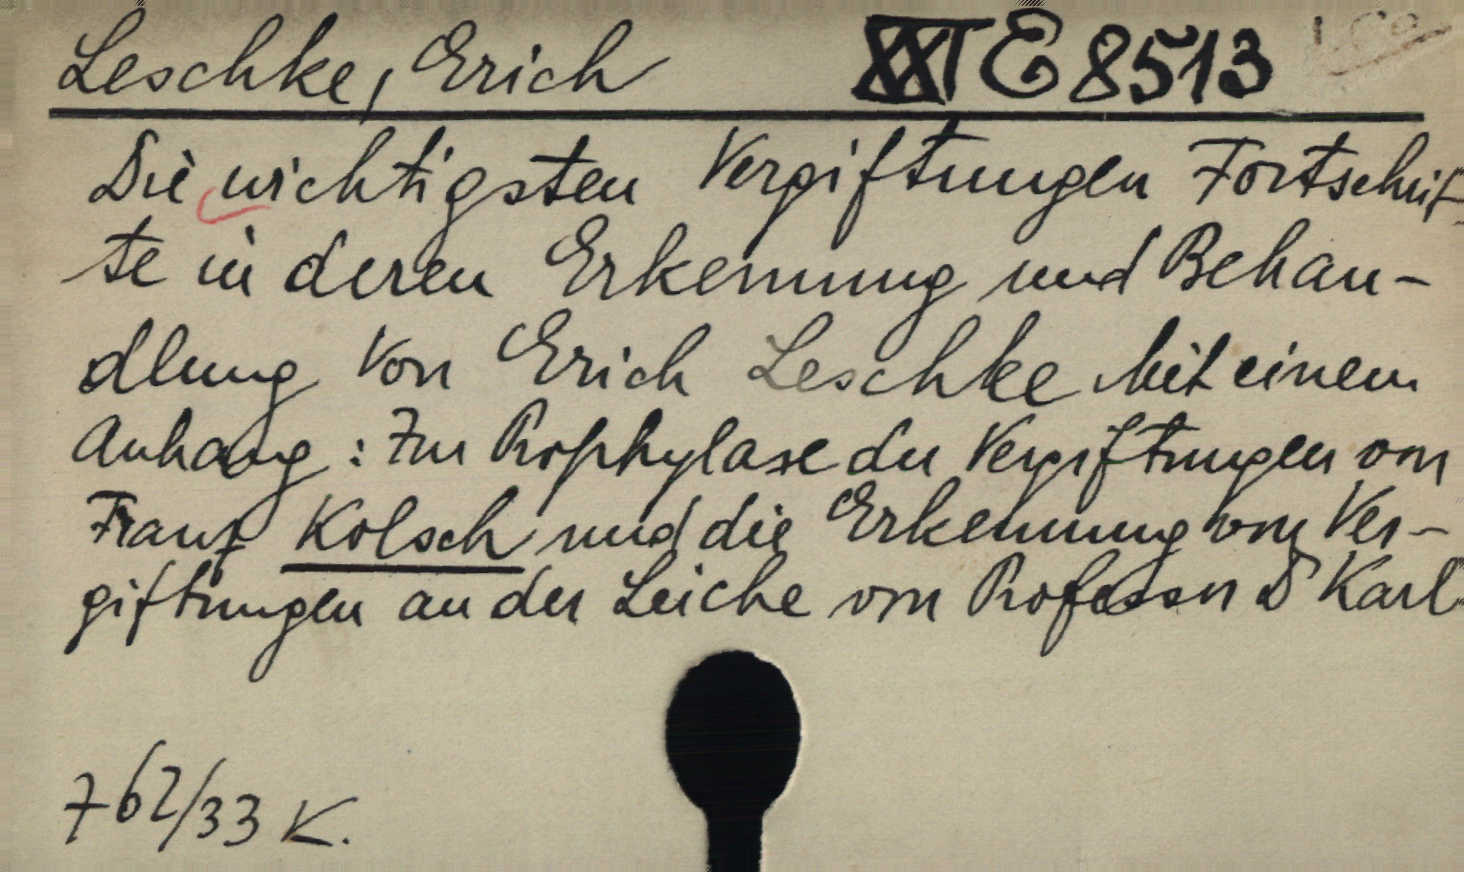 Leschke, Erich XXI E 8513
Die wichtigsten Vergiftungen Fortschrit-
te in deren Erkennung und Behan-
dlung von Erich Leschke Mit einem
Anhang: Zur Prophylaxe der Vergiftungen von
Franz Kölsch und die Erkennung von Ver-
giftungen an der Leiche von Professor Dr Karl
762/33 K.